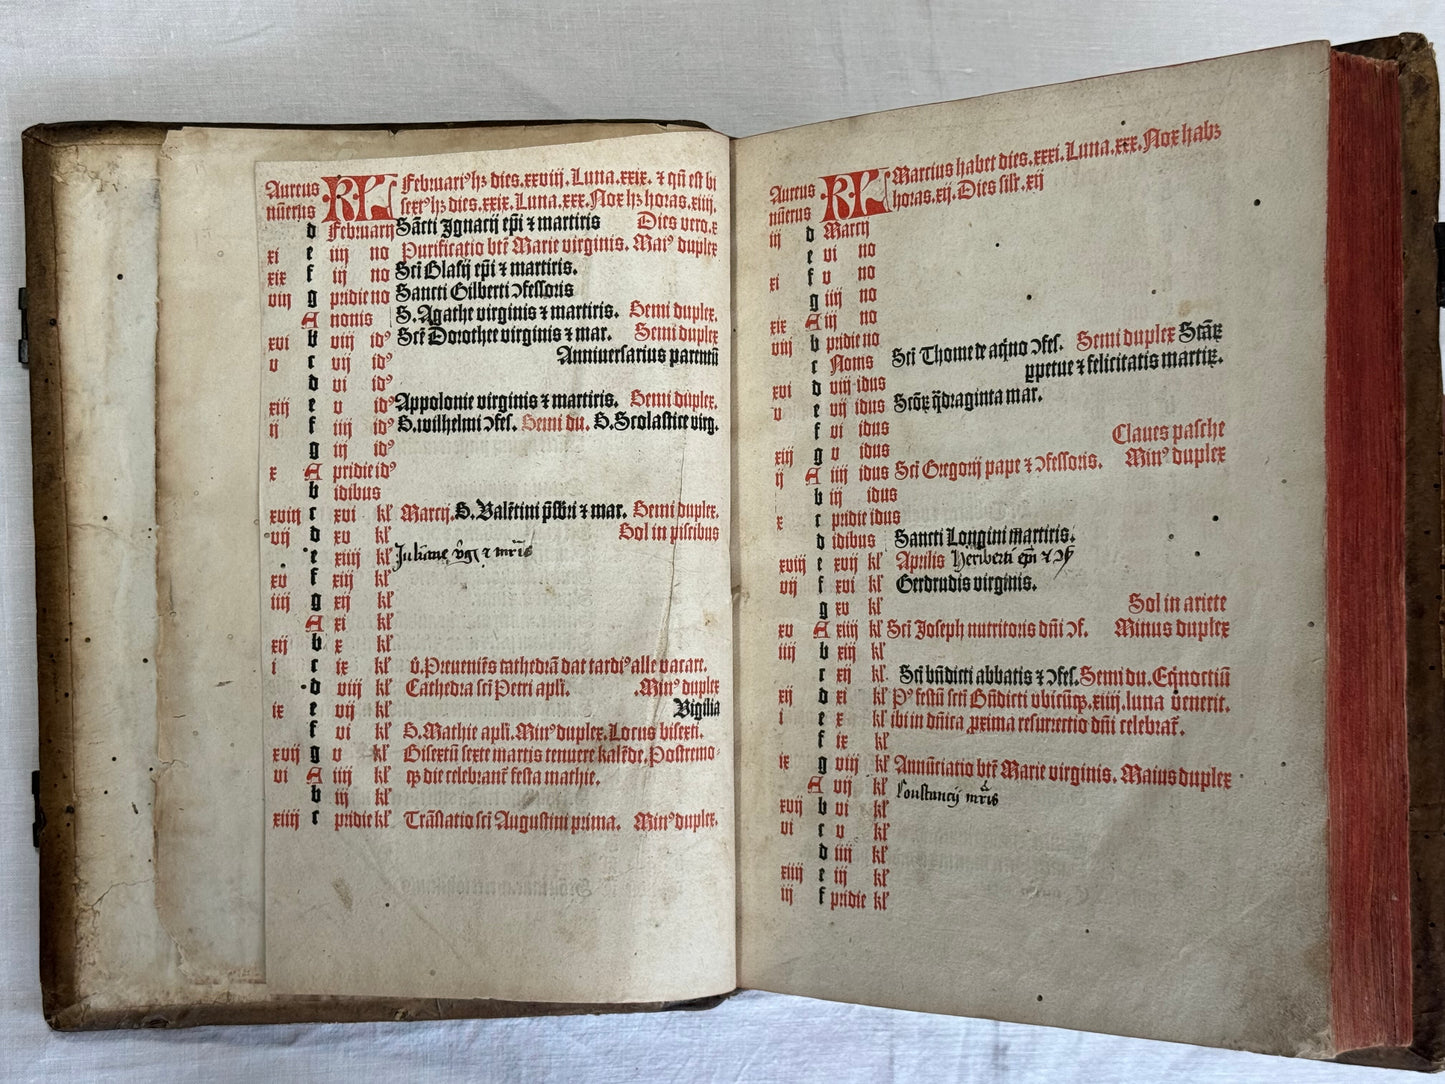 Aureus KL Februari⁹ hꝫ dies.xxviij. Luna.xxix. ⁊ qn̄ est bi
nūerus sext⁹ hꝫ dies.xxix. Luna.xxx. Nox hꝫ horas.xiiij.
d Februarij Sācti Ignacij ep̄i ⁊ martiris Dies vero.x
xi e iiij no Purificatio bt̄e Marie virginis. Mai⁹ duplex
xix f iij no Sc̄i Blasij ep̄i ⁊ martiris.
viij g pridie no Sancti Gilberti ↄfessoris
A nonis S. Agathe virginis ⁊ martiris. Semi duplex.
xvi b viij id⁹ Sc̄e Dorothee virginis ⁊ mar. Semi duplex
v c vij id⁹ Anniuersarius parentū
d vi id⁹
xiij e v id⁹ Appolonie virginis ⁊ martiris. Semi duplex.
ij f iiij id⁹ S. wilhelmi ↄfes. Semi du. S. Scolastice virg.
g iij id⁹
x A pridie id⁹
b idibus
xviij c xvi kl̓ Marcij. S. Valētini p̄sbri ⁊ mar. Semi duplex.
vij d xv kl̓ Sol in piscibus
e xiiij kl̓ Juliane v̄gĩ ⁊ mr̄is
xv f xiij kl̓
iiij g xij kl̓
A xi kl̓
xij b x kl̓
i c ix kl̓ v̓. Preueniēs cathedrā dat tardi⁹ alle vacare.
d viij kl̓ Cathedra sc̄i Petri apl̓i. Min⁹ duplex
ix e vij kl̓ Vigilia
f vi kl̓ S. Mathie apl̓i. Min⁹ duplex. Locus bisexti.
xvij g v kl̓ Bisextū sexte martis tenuere kalēde. Postremo-
vi A iiij kl̓ qꝫ die celebrant̓ festa mathie.
b iij kl̓
xiiij c pridie kl̓ Trāslatio sc̄i Augustini prima. Min⁹ duplex.
Aureus KL Marcius habet dies.xxxi. Luna.xxx. Nox habꝫ
nūerus horas.xij. Dies sil̓r.xij
iij d Marcij
e vi no
xi f v no
g iiij no
xix A iij no
viij b pridie no
c Nonis Sc̄i Thome de aq̄no ↄfes. Semi duplex Scāꝝ
xvi d viij idus ꝑpetue ⁊ felicitatis martiꝝ.
v e vij idus Scōꝝ q̄draginta mar.
f vi idus
xiij g v idus Claues pasche
ij A iiij idus Sc̄i Gregorij pape ⁊ ↄfessoris. Min⁹ duplex
b iij idus
x c pridie idus
d idibus Sancti Longini martiris.
xviij e xvij kl̓ Aprilis Heriberti ep̄i ⁊ ↄf
vij f xvi kl̓ Gerdrudis virginis.
g xv kl̓ Sol in ariete
xv A xiiij kl̓ Sc̄i Joseph nutritoris dn̄i ↄf. Minus duplex
iiij b xiij kl̓
c xij kl̓ Sc̄i bn̄dicti abbatis ⁊ ↄfes. Semi du. Eq̄noctiū
xij d xi kl̓ P⁹ festū sc̄ti Bn̄dicti vbicūqꝫ.xiiij. luna venerit.
i e x kl̓ ibi in dn̄ica ꝓxima resurrectio dn̄i celebrat̓.
f ix kl̓
ix g viij kl̓ Annūciatio bt̄e Marie virginis. Maius duplex
A vij kl̓ Constancij mr̄is
xvij b vi kl̓
vi c v kl̓
d iiij kl̓
xiiij e iij kl̓
iij f pridie kl̓